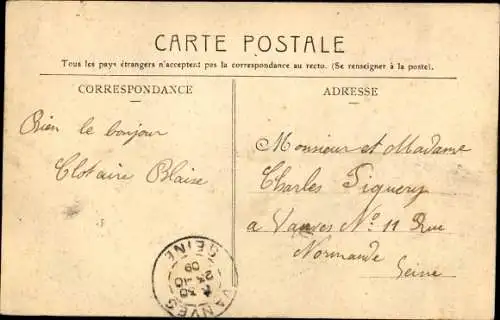 CARTE POSTALE
Tous les pays étrangers n'acceptent pas la correspondance au recto. (Se renseigner à la poste).
CORRESPONDANCE
ADRESSE
Bien le bonjour
Clotaire Blaise
Monsieur et Madame
Charles Piquery
a Vanves No 11 Rue
Normande
Seine
VANVES
SEINE
30
23 -10
09